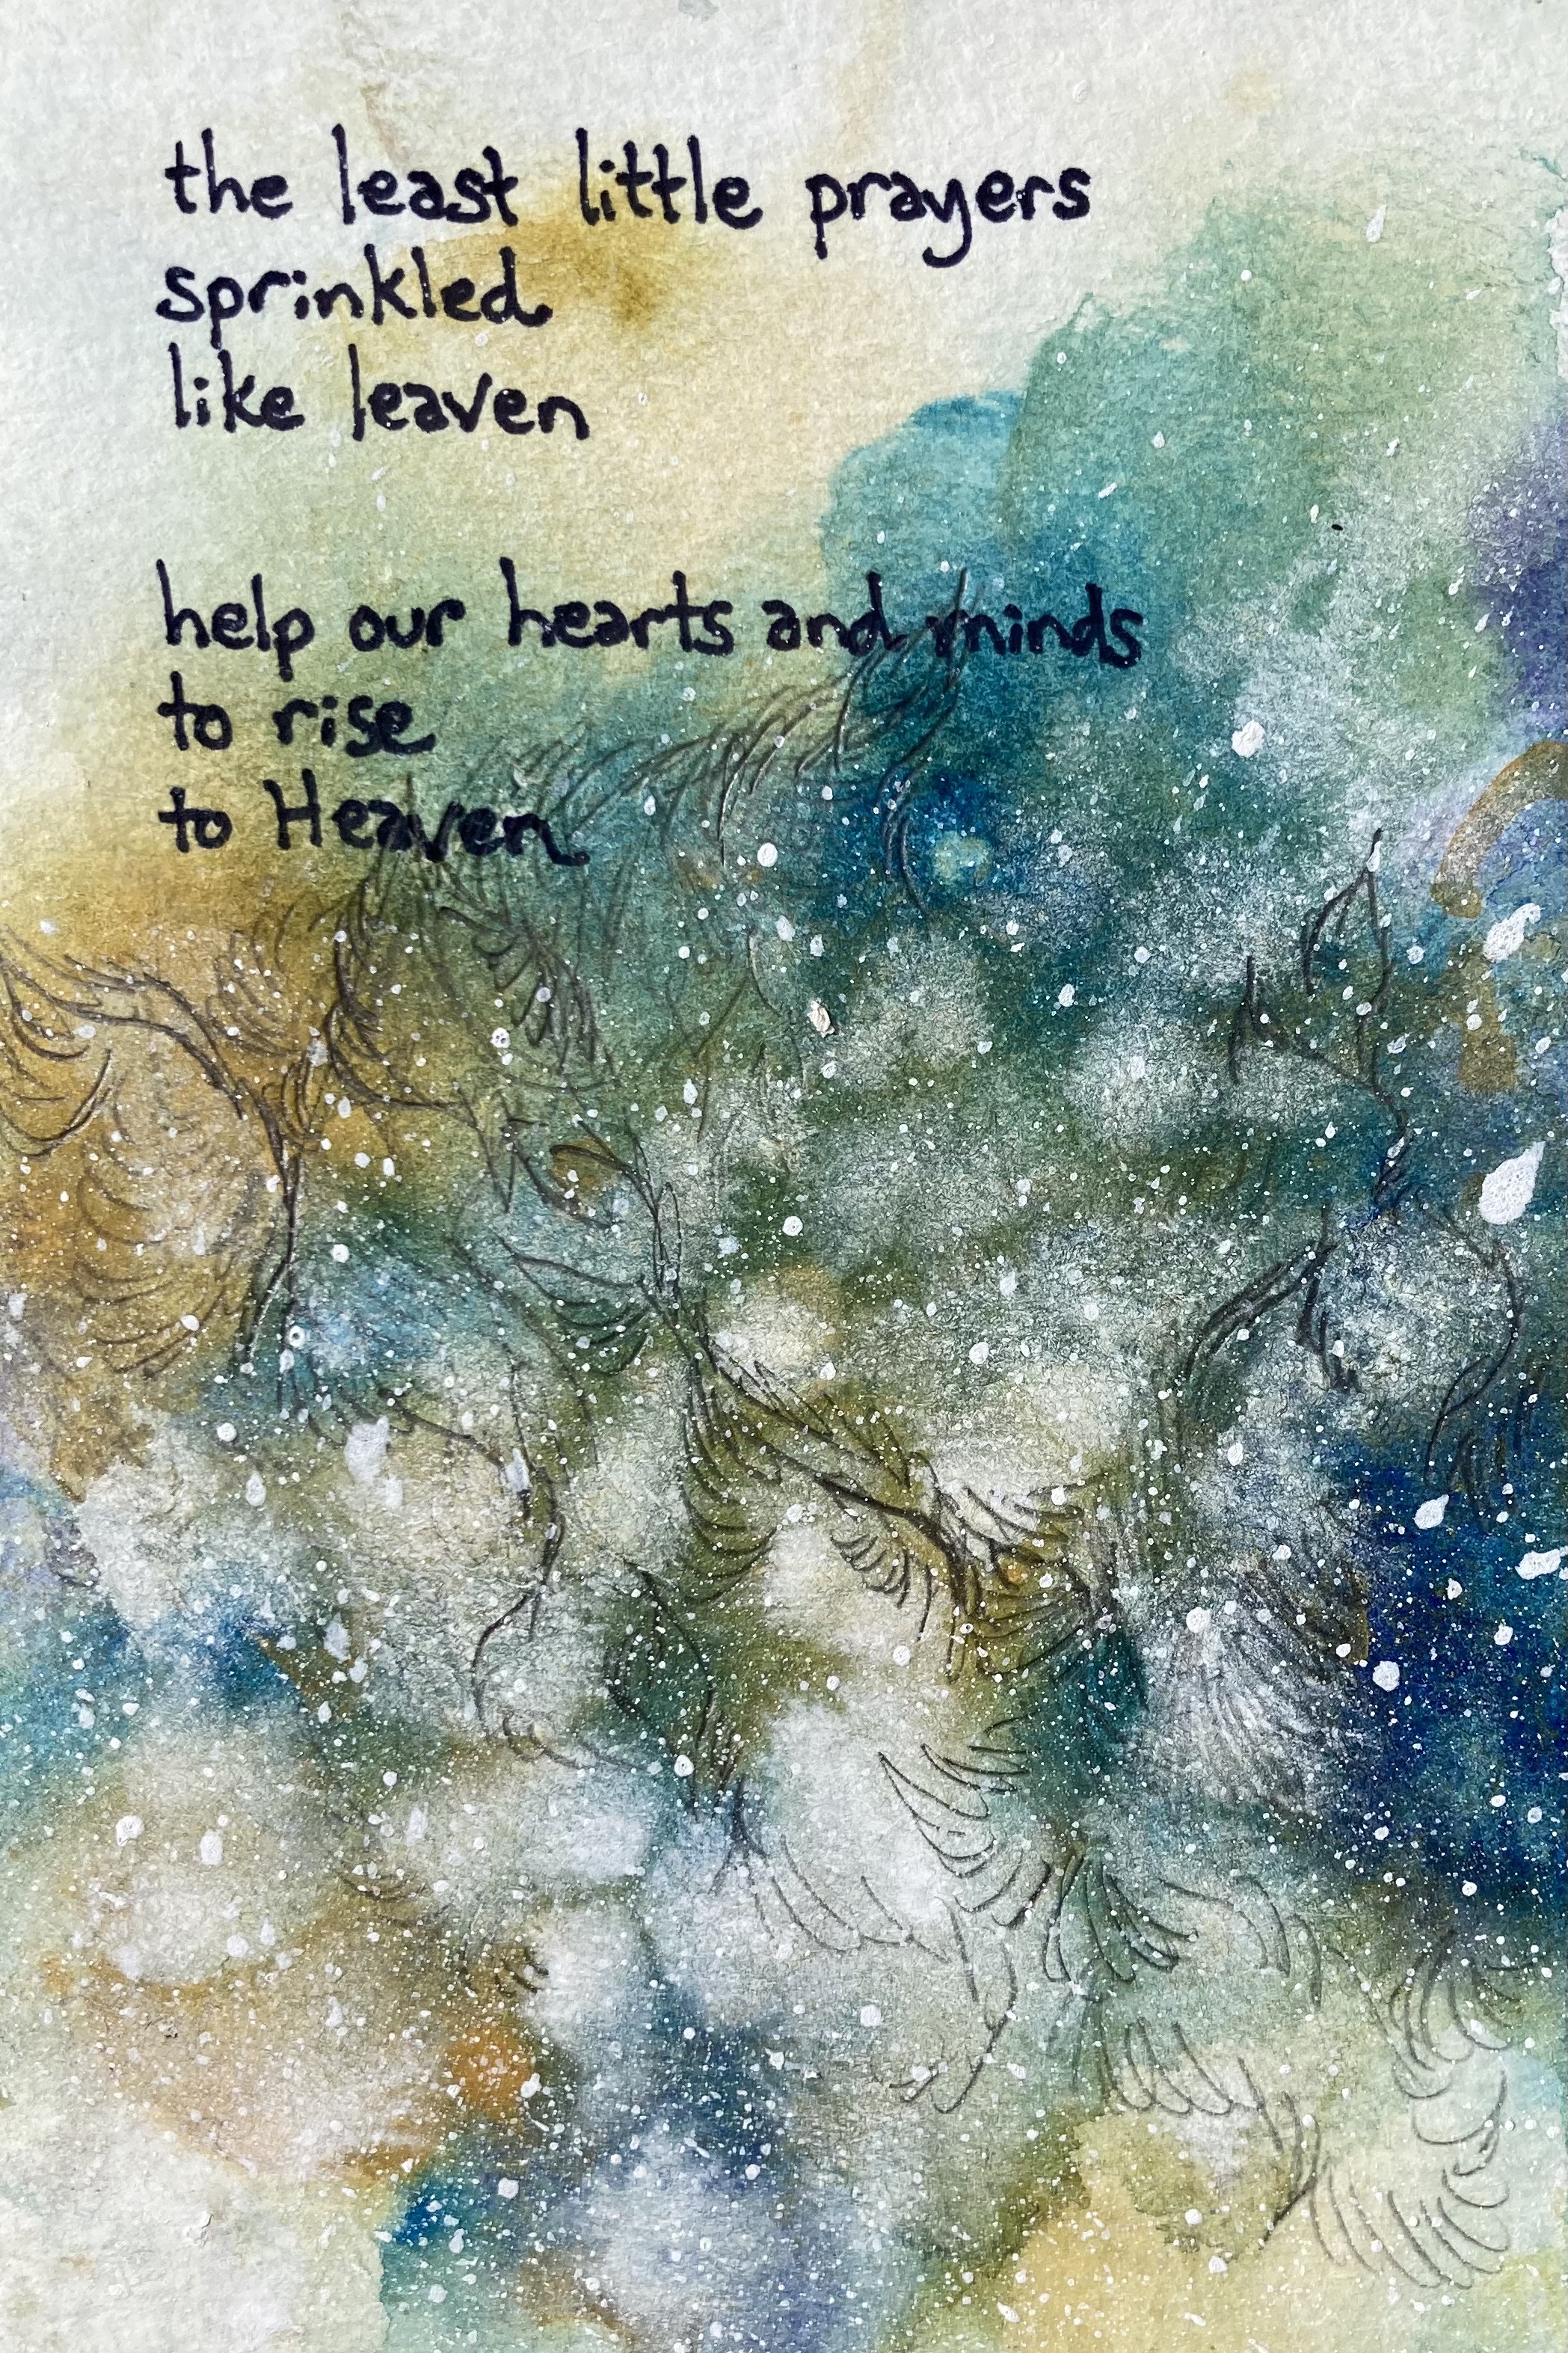 the least little prayers
sprinkled
like leaven
help our hearts and minds
to rise
to Heaven